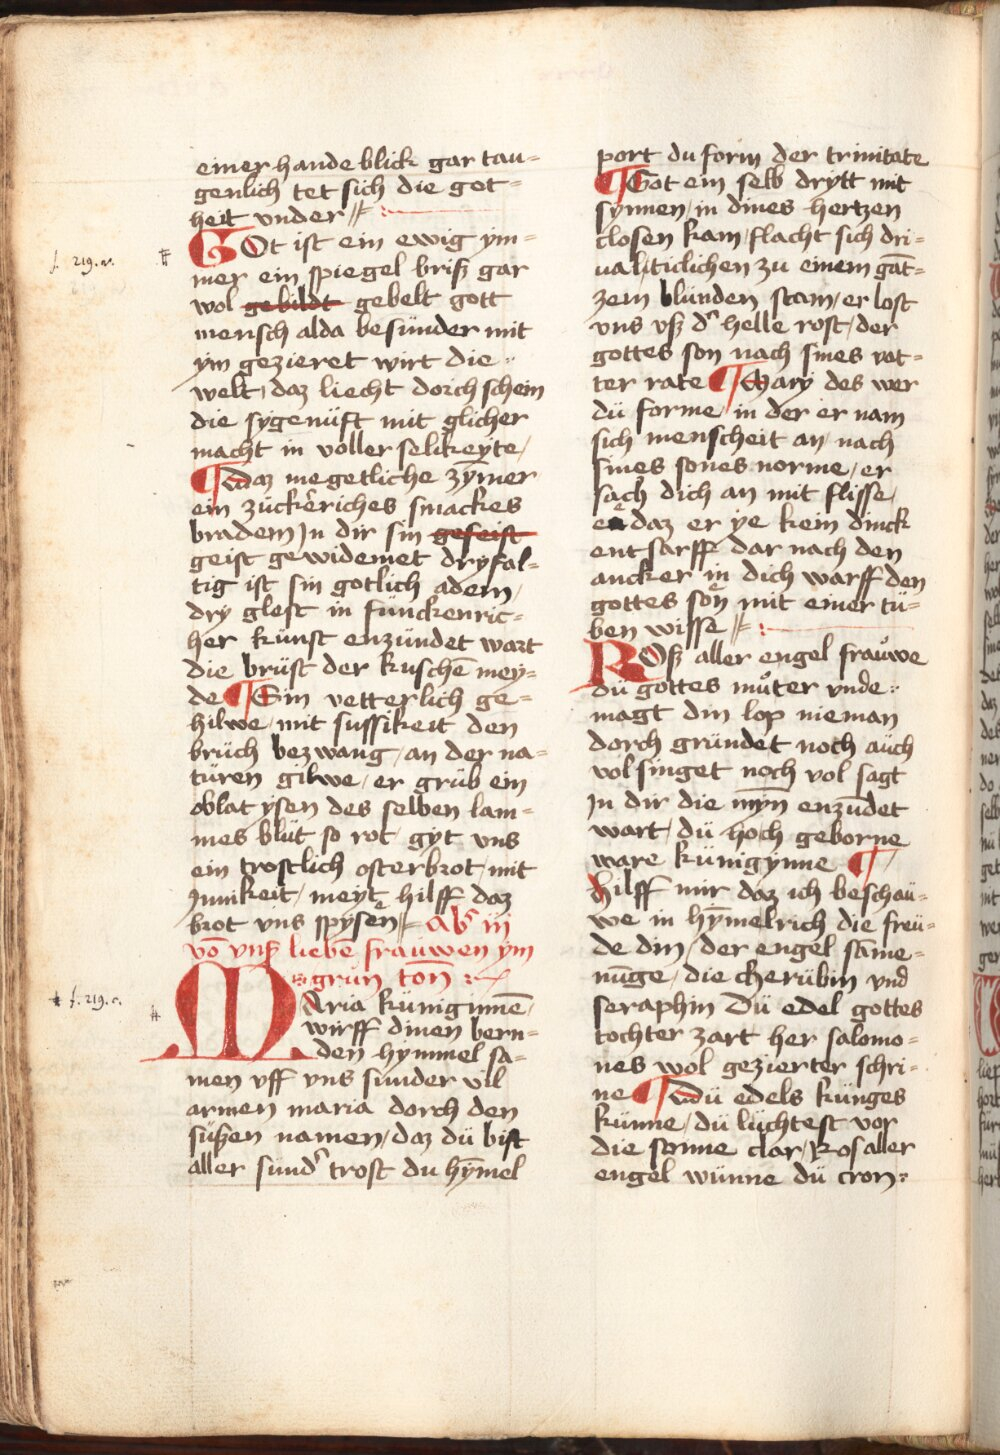 einer hande blick gar tau=
genlich tet sich die got=
heit vnder
f. 219. v.
GOt ist ein ewig ym=
mer ein spiegel brisz gar
wol gebildt gebelt gott
mensch alda besünder mit
ym gezieret wirt die
welt, daz liecht dorch schein
die sygenüft mit glicher
macht in voller selikeyte,
¶ Daz megetliche zȳmer
ein zückeriches smackes
bradem Jn dir sin gefeist
geist gewidemet dryfal=
tig ist sin gotlich adem,
dry glest in fünckenric=
her künst enzündet wart
die brüst der kuschē mey=
de ¶ Ein vetterlich ge=
hilwe, mit sussikeit den
brüch bezwang, an der na=
türen gilwe, er grüb ein
oblat ysen des selben lam=
mes blüt so rot, gyt vns
ein trostlich osterbrot, mit
Jnnikeit, meyt hilff daz
brot vns spysen Ab iij
vō vnsz liebē frauwen ym
grün ton
f. 219. c.
MAria künigynnē,
wirff dinen bern=
den hymmel sa=
men vff vns sünder vil
armen maria dorch den
süszen namen, daz dü bist
aller sünd' trost du hȳmel
port du form der trinitate
¶ Got ein selb drytt mit
synnen, in dines hertzen
closen kam, flacht sich dri=
ualiticlichen zu einem gāt=
zem blünden stam, er lost
vns vsz d' helle rost, der
gottes son nach sines vat=
ter rate ¶ Mary des wer
dü forme, in der er nam
sich menscheit an, nach
sines sones norme, er
sach dich an mit flisse,
e daz er ye kein dinck
entsarff dar nach den
ancker in dich warff den
gottes son mit einer tü=
ben wisse
ROsz aller engel frauwe
dü gottes müter vnde
magt din lop nieman
dorch gründet noch aüch
vol singet noch vol sagt
Jn dir die myn enzūdet
wart, dü hoch geborne
ware künigynne ¶
Hilff mir daz ich beschaü=
we in hȳmelrich die freü=
de din, der engel sāme=
nūge, die cherübin vnd
seraphin Dü edel gottes
tochter zart her salomo=
nes wol gezierter schri=
ne ¶ Dü edels künges
künne, dü lüchtest vor
die sonne clar, Ros aller
engel wünne dü cron